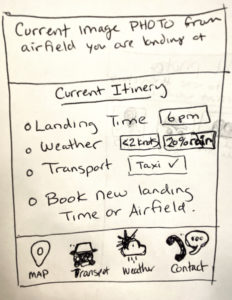 Current Image PHOTO from
airfield you are landing at
Current Itinery
Landing Time 6pm
Weather <2knots 20% rain
Transport Taxi ✓
Book new landing
Time or Airfield.
MAP Transpot Weather Contact